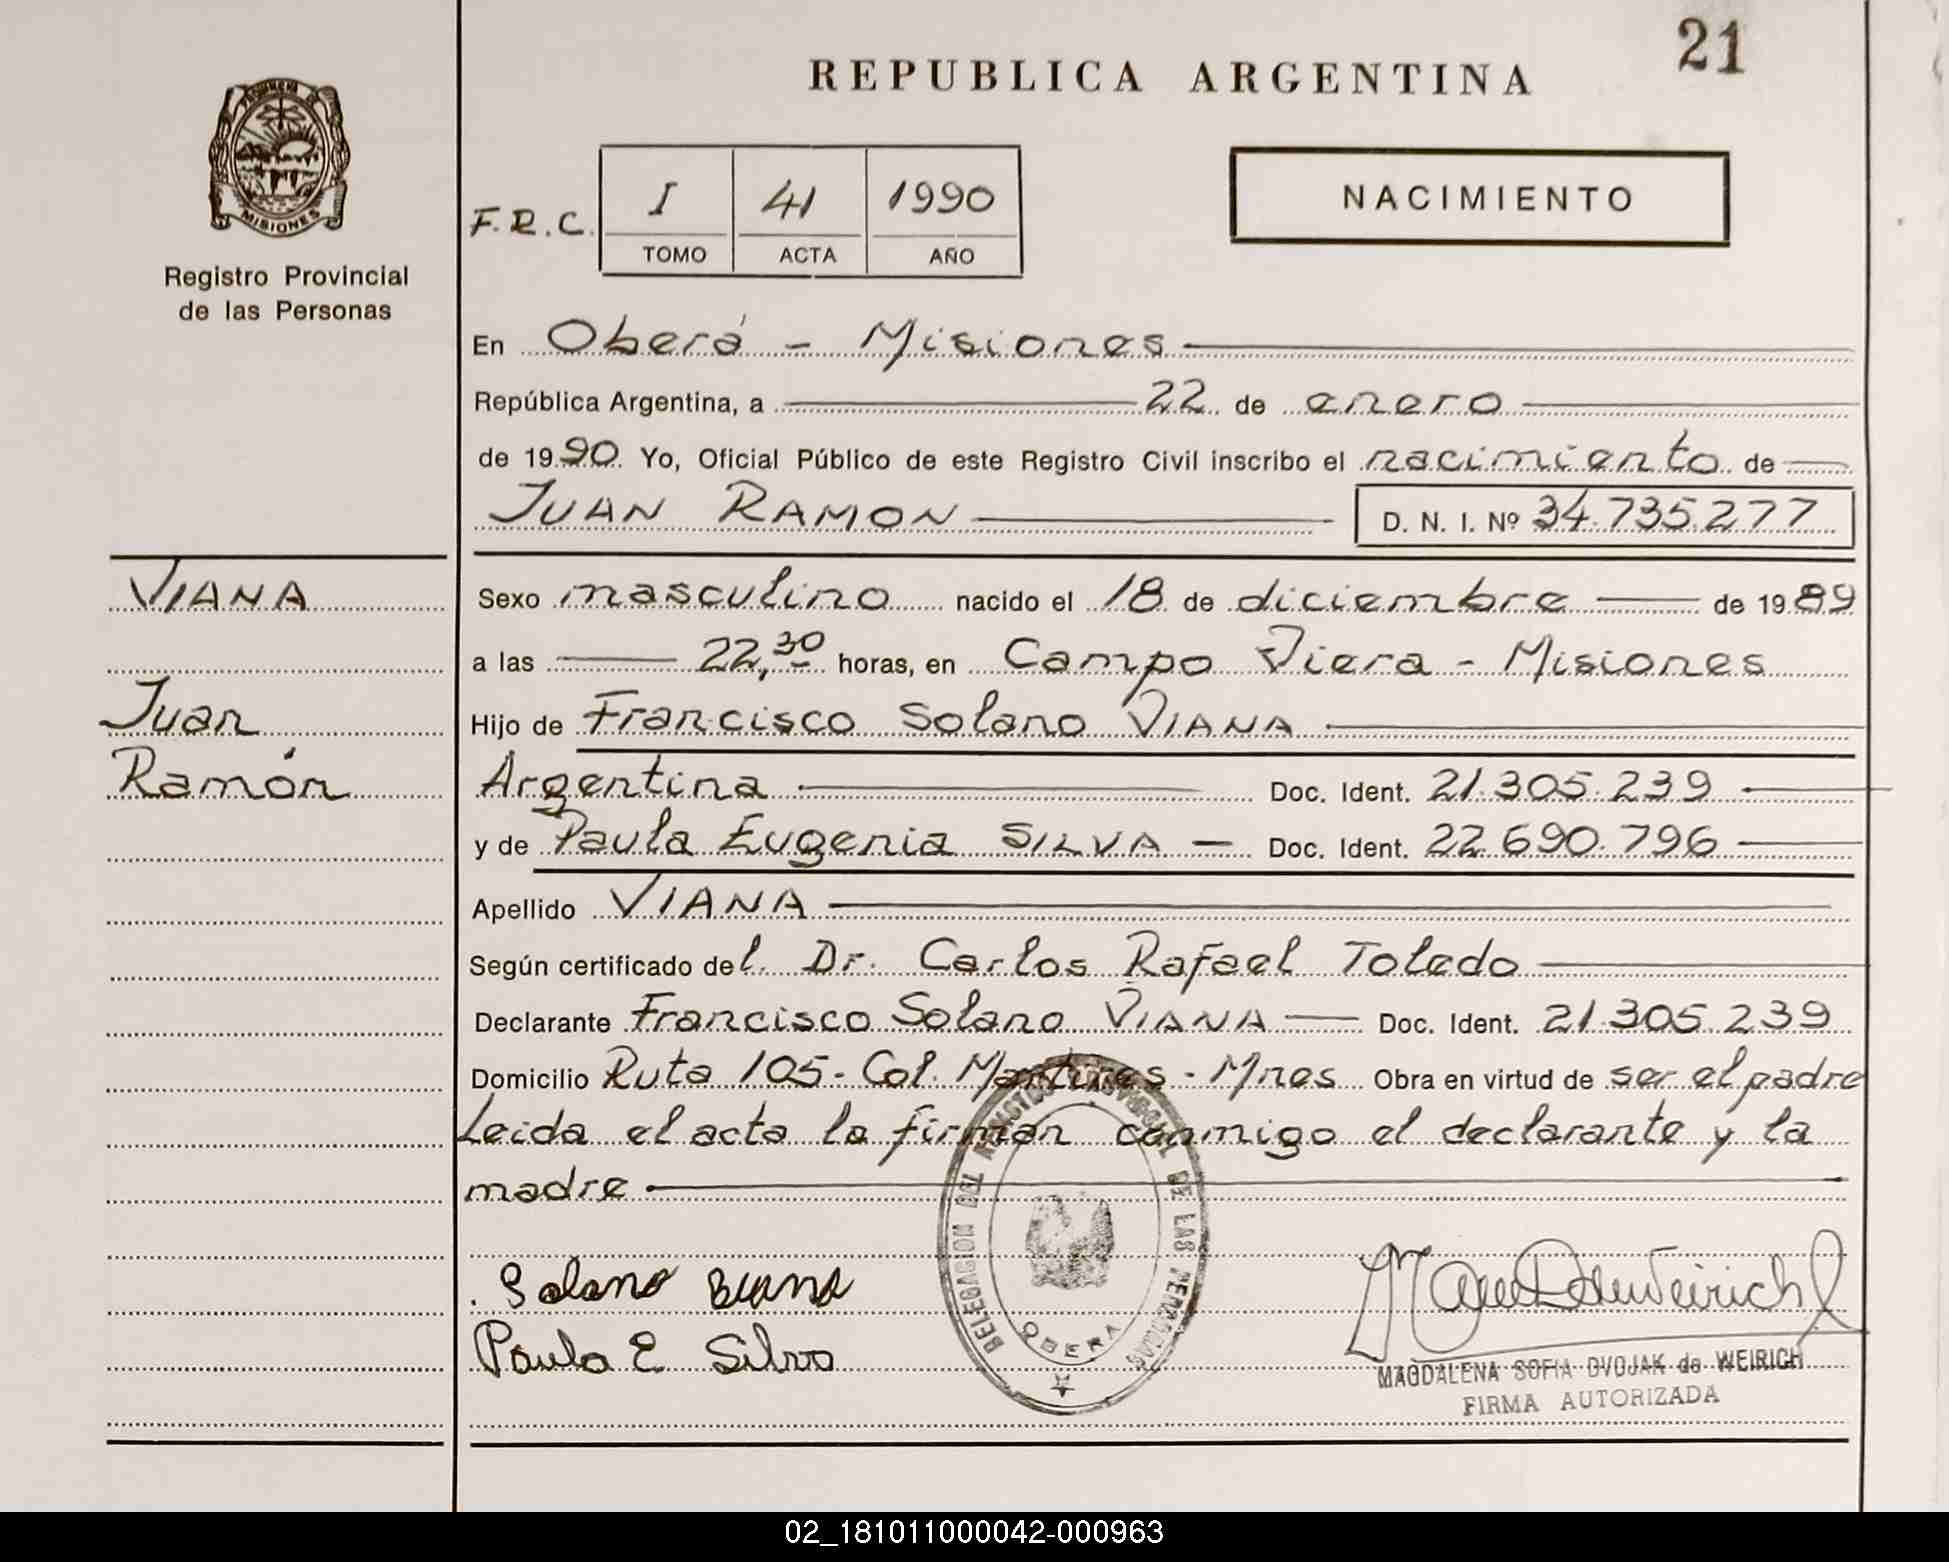 21
REPUBLICA ARGENTINA
PROVINCIA DE
MISIONES
Registro Provincial
de las Personas
F.R.C. I 41 1990
TOMO ACTA AÑO
NACIMIENTO
En Oberá - Misiones
República Argentina, a 22 de enero
de 1990 Yo, Oficial Público de este Registro Civil inscribo el nacimiento de
JUAN RAMON D. N. I. Nº 34.735.277
VIANA
Juan
Ramón
Sexo masculino nacido el 18 de diciembre de 1989
a las 22,30 horas, en Campo Viera - Misiones
Hijo de Francisco Solano VIANA
Argentina Doc. Ident. 21.305.239
y de Paula Eugenia SILVA Doc. Ident. 22.690.796
Apellido VIANA
Según certificado del Dr. Carlos Rafael Toledo
Declarante Francisco Solano VIANA Doc. Ident. 21.305.239
Domicilio Ruta 105 - Col. Martires - Mnes Obra en virtud de ser el padre
Leida el acta la firman conmigo el declarante y la
madre
DELEGACION DEL REGISTRO PROVINCIAL DE LAS PERSONAS
OBERA
Solano
Paula E Silva
MAGDALENA SOFIA DVOJAK de WEIRICH
FIRMA AUTORIZADA
02_181011000042-000963